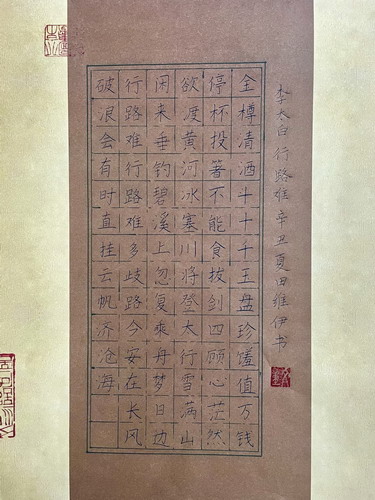 李太白行路难辛丑夏田维伊书
金樽清酒斗十千玉盘珍馐值万钱
停杯投箸不能食拔剑四顾心茫然
欲渡黄河冰塞川将登太行雪满山
闲来垂钓碧溪上忽复乘舟梦日边
行路难行路难多歧路今安在长风
破浪会有时直挂云帆济沧海